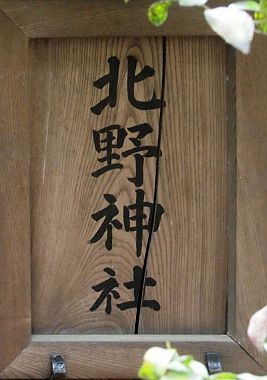 北野神社